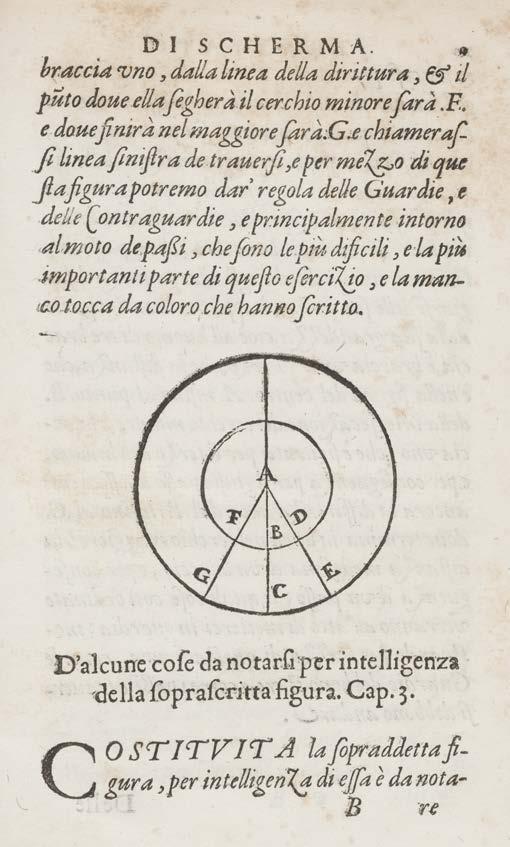 DI SCHERMA. 9
braccia vno, dalla linea della dirittura, & il
pũto doue ella segherà il cerchio minore sarà .F.
e doue finirà nel maggiore sarà .G. e chiameras-
si linea sinistra de trauersi, e per mezzo di que
sta figura potremo dar' regola delle Guardie, e
delle Contraguardie, e principalmente intorno
al moto de passi, che sono le più dificili, e la più
importanti parte di questo esercizio, e la man-
co tocca da coloro che hanno scritto.
A
F D
B
G E
C
D'alcune cose da notarsi per intelligenza
della soprascritta figura. Cap. 3.
COSTITVITA la sopraddetta fi-
gura, per intelligenza di essa è da nota-
B re